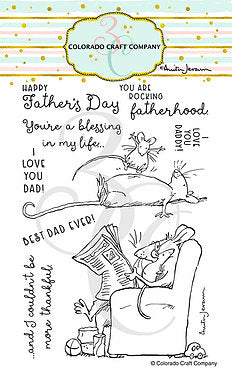 COLORADO CRAFT COMPANY
©Anita Jeram
HAPPY
Father's Day
YOU ARE
ROCKING
fatherhood.
You're a blessing
in my life...
LOVE
YOU
DADDY!
I
LOVE
YOU
DAD!
BEST DAD EVER!
...and I couldn't be
more thankful.
Anita Jeram
© Colorado Craft Company